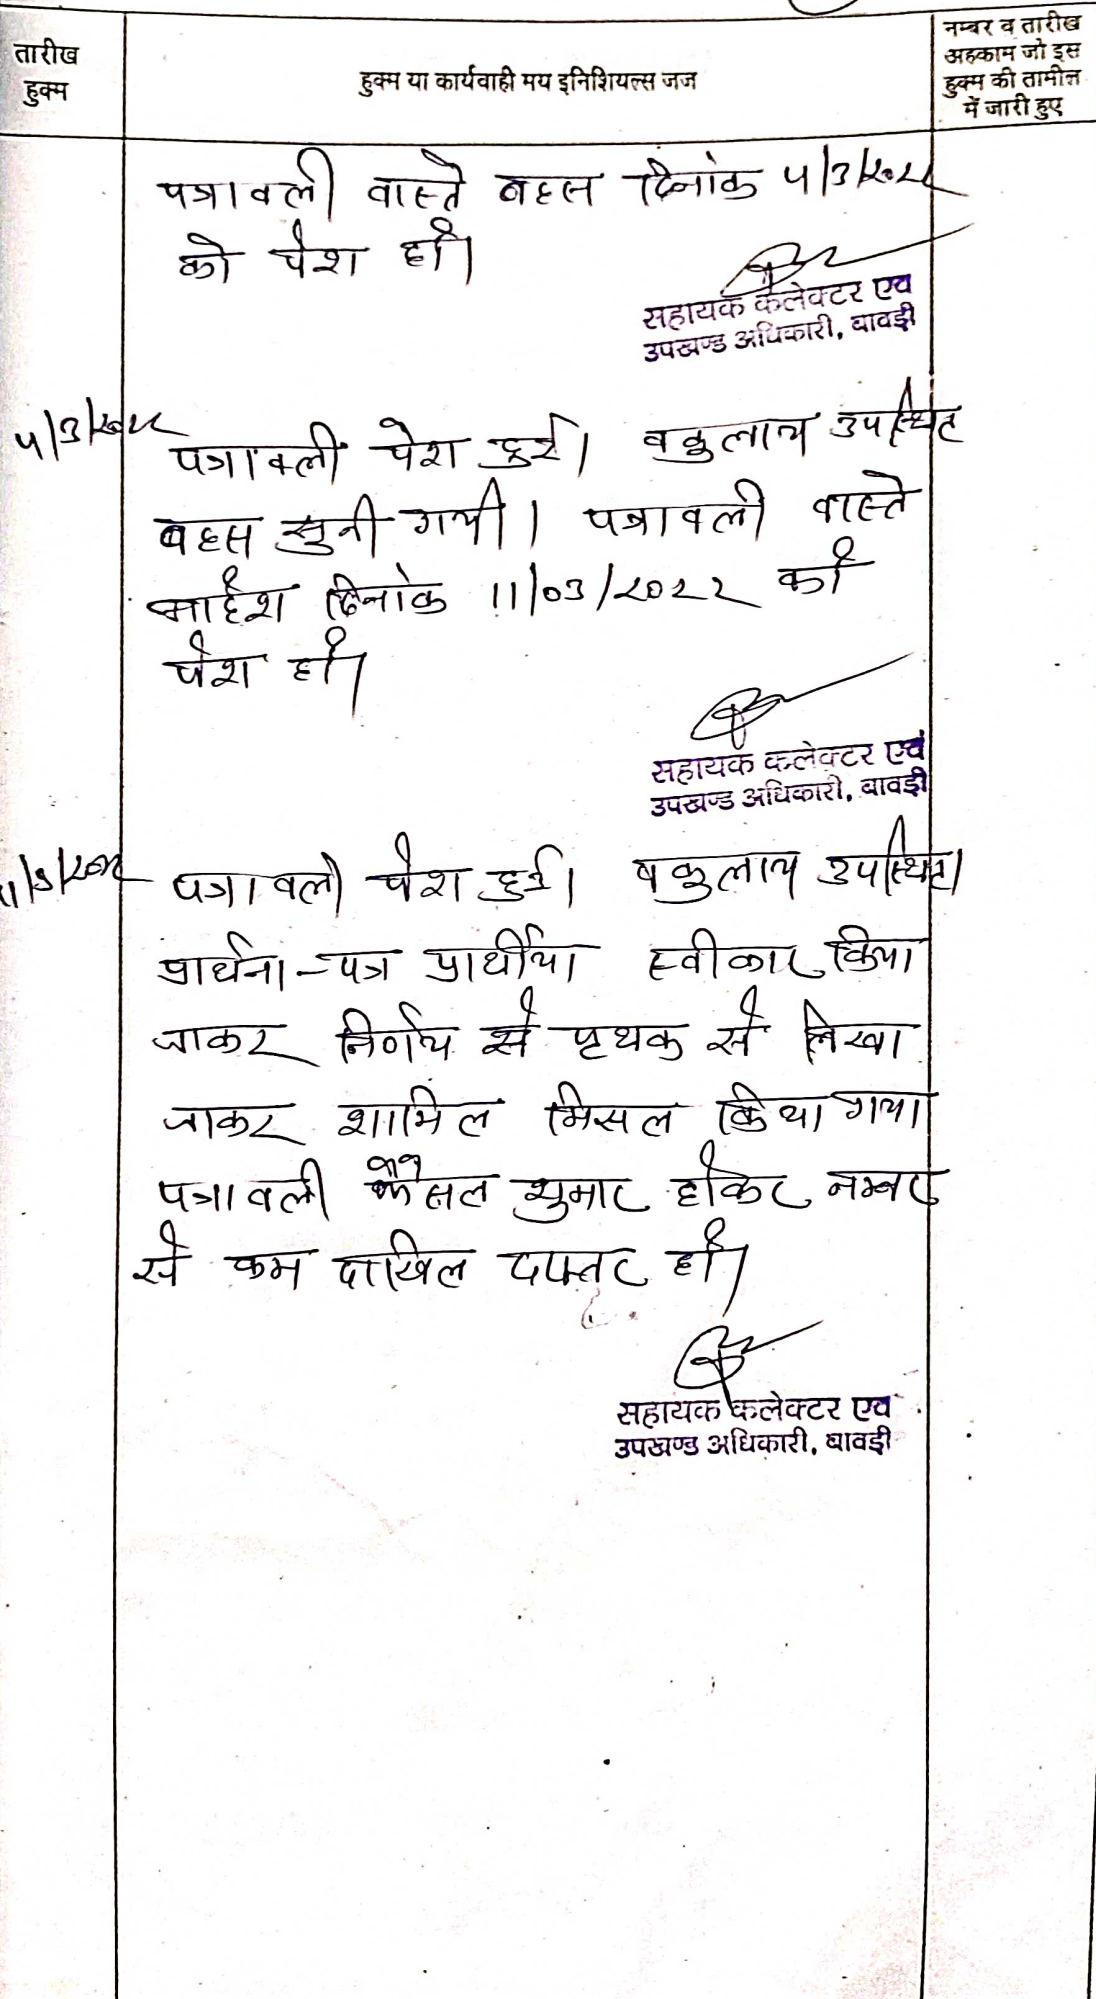 तारीख
हुक्म
हुक्म या कार्यवाही मय इनिशियल्स जज
नम्बर व तारीख
अहकाम जो इस
हुक्म की तामील
में जारी हुए
पत्रावली वास्ते बहस दिनांक 4/3/2022
को पेश हो।
सहायक कलेक्टर एवं
उपखण्ड अधिकारी, बावड़ी
4/3/2022
पत्रावली पेश हुई। वकुलाय उपस्थित
बहस सुनी गयी। पत्रावली वास्ते
आदेश दिनांक 11/03/2022 को
पेश हो।
सहायक कलेक्टर एवं
उपखण्ड अधिकारी, बावड़ी
11/3/2022
पत्रावली पेश हुई। वकुलाय उपस्थित।
प्रार्थना-पत्र प्रार्थीया स्वीकार किया
जाकर निर्णय से पृथक से लिखा
जाकर शामिल मिसल किया गया
पत्रावली फैसल शुमार होकर नम्बर
से कम दाखिल दफ्तर हो।
सहायक कलेक्टर एवं
उपखण्ड अधिकारी, बावड़ी